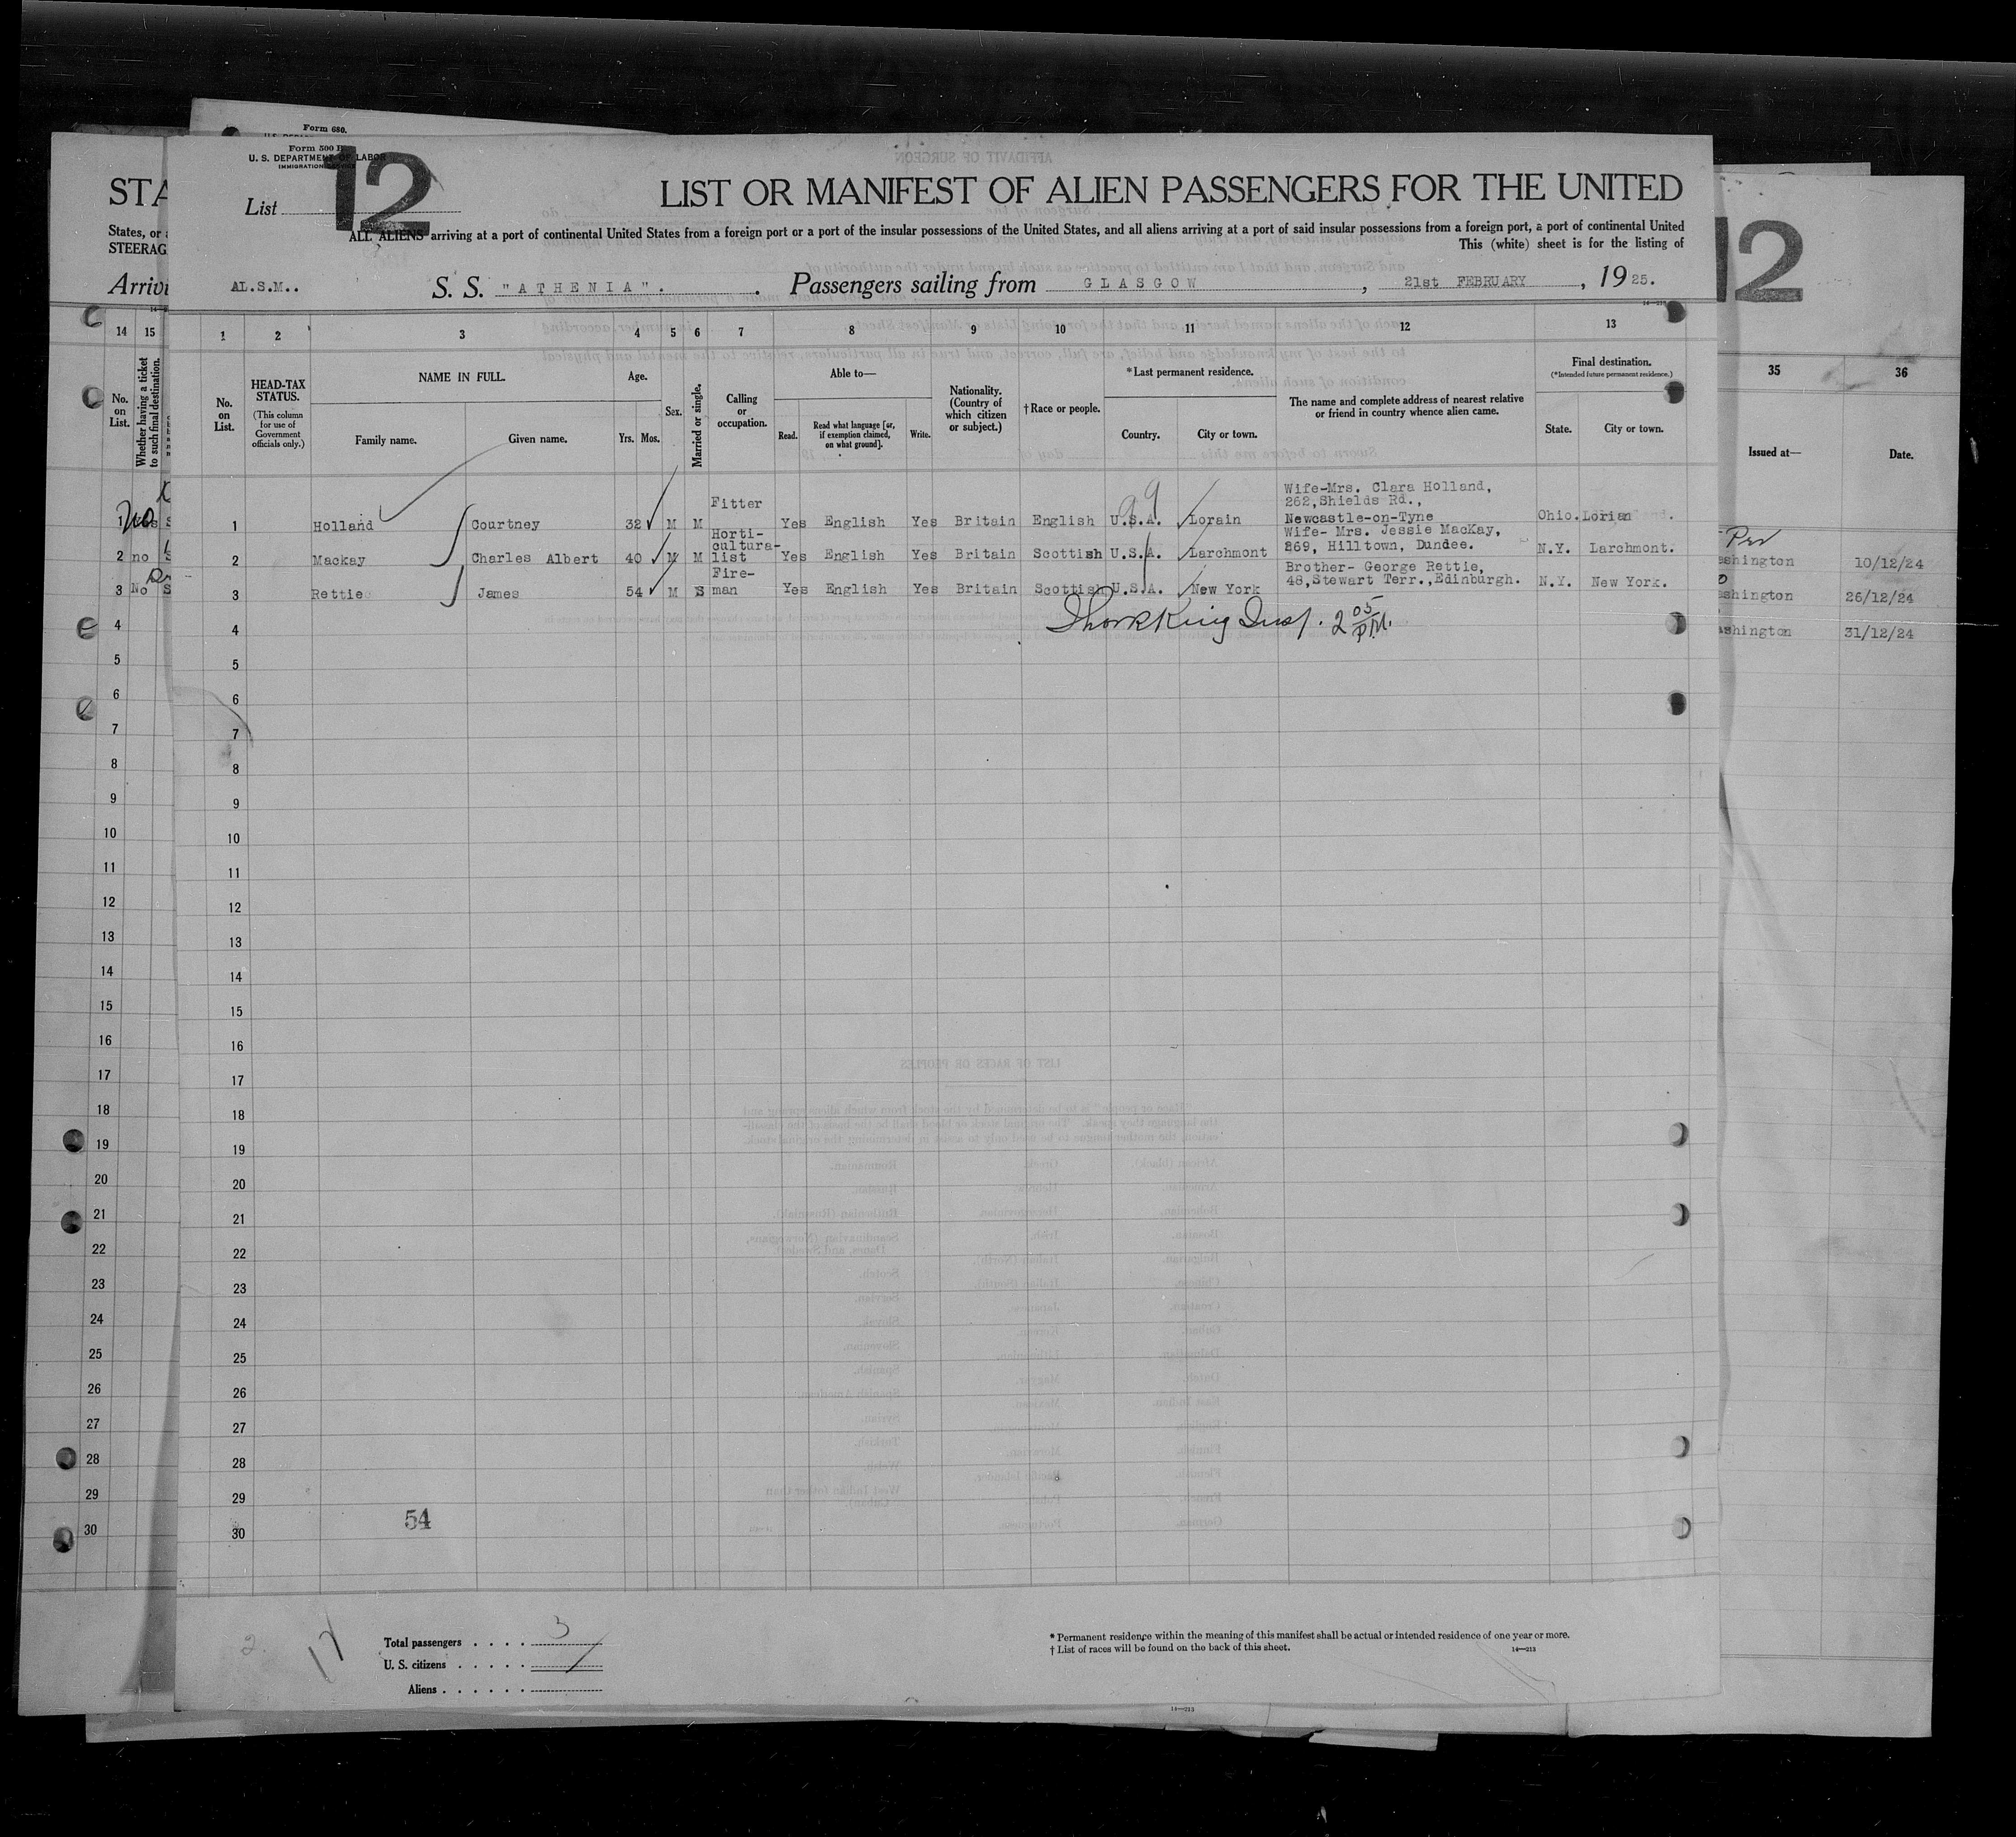 Form 680.
Form 500 B
U. S. DEPARTMENT OF LABOR
IMMIGRATION SERVICE
12
List
LIST OR MANIFEST OF ALIEN PASSENGERS FOR THE UNITED
ALL ALIENS arriving at a port of continental United States from a foreign port or a port of the insular possessions of the United States, and all aliens arriving at a port of said insular possessions from a foreign port, a port of continental United
This (white) sheet is for the listing of
AL.S.M.. S. S. "ATHENIA". Passengers sailing from GLASGOW, 21st FEBRUARY, 1925.
STA
States, or
STEERAG
Arrivi
12
14 15
1 2 3 4 5 6 7 8 9 10 11 12 13
35 36
No. on List.
Whether having a ticket to such final destination.
No. on List.
HEAD-TAX STATUS.
(This column for use of Government officials only.)
NAME IN FULL.
Family name. Given name.
Age.
Yrs. Mos.
Sex.
Married or single.
Calling or occupation.
Able to—
Read. Read what language [or, if exemption claimed, on what ground]. Write.
Nationality. (Country of which citizen or subject.)
†Race or people.
*Last permanent residence.
Country. City or town.
The name and complete address of nearest relative or friend in country whence alien came.
Final destination.
(*Intended future permanent residence.)
State. City or town.
Issued at— Date.
1 Holland Courtney 32 M M Fitter Yes English Yes Britain English U.S.A. Lorain Wife-Mrs. Clara Holland, 262,Shields Rd., Newcastle-on-Tyne Ohio. Lorian
2 Mackay Charles Albert 40 M M Horti-cultura-list Yes English Yes Britain Scottish U.S.A. Larchmont Wife- Mrs. Jessie MacKay, 269, Hilltown, Dundee. N.Y. Larchmont.
3 Rettie James 54 M S Fire-man Yes English Yes Britain Scottish U.S.A. New York Brother- George Rettie, 48,Stewart Terr.,Edinburgh. N.Y. New York.
1 No
2 no
3 No
shington 10/12/24
shington 26/12/24
shington 31/12/24
King Insp. 2 05 P.M.
4
5
6
7
8
9
10
11
12
13
14
15
16
17
18
19
20
21
22
23
24
25
26
27
28
29
30
4
5
6
7
8
9
10
11
12
13
14
15
16
17
18
19
20
21
22
23
24
25
26
27
28
29
30
54
2.
17
Total passengers . . . . 3
U. S. citizens . . . . .
Aliens . . . . . .
* Permanent residence within the meaning of this manifest shall be actual or intended residence of one year or more.
† List of races will be found on the back of this sheet.
14—213
14—213